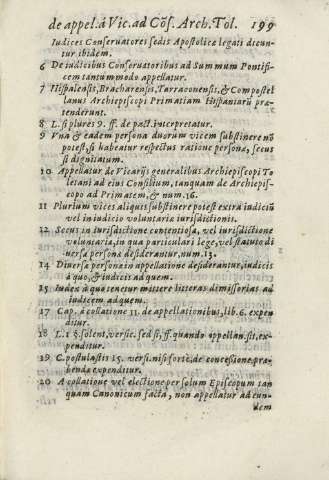 de appel. à Vic. ad Cõs. Arch. Tol. 199
Iudices Conseruatores sedis Apostolicæ legati dicun-
tur ibidem.
6 De iudicibus Conseruatoribus ad Summum Pontifi-
cem tantummodo appellatur.
7 Hispalensis, Bracharensis, Tarraconensis, & Compostel
lanus Archiepiscopi Primatiam Hispaniarũ præ-
tenderunt.
8 L. si plures 9. ff. de pact. interpretatur.
9 Vna & eadem persona duorum vicem substinere nõ
potest, si habeatur respectus ratione personæ, secus
si dignitatum.
10 Appellatur de Vicarijs generalibus Archiepiscopi To
letani ad eius Consilium, tanquam de Archiepis-
copo ad Primatem, & num. 16.
11 Plurium vices aliquis substinere potest extra iudiciũ
vel in iudicio voluntariæ iurisdictionis.
12 Secus in iurisdictione contentiosa, vel iurisdictione
voluntaria, in qua particulari lege, vel statuto di
uersæ personæ desiderantur, num. 13.
14 Diuersæ personæ in appellatione desiderantur, iudicis
à quo, & iudicis ad quem.
15 Iudex à quo tenetur mittere litteras dimissorias ad
iudicem ad quem.
17 Cap. à collatione 11. de appellationibus, lib. 6. expen
ditur.
18 L. 1 §. solent, versic. sed si, ff. quando appellan. sit, ex-
penditur.
19 C. postulastis 15. versi. nisi fortè. de concessione præ-
bendæ expenditur.
20 A collatione vel electione per solum Episcopum tan
quam Canonicum facta, non appellatur ad eun-
dem